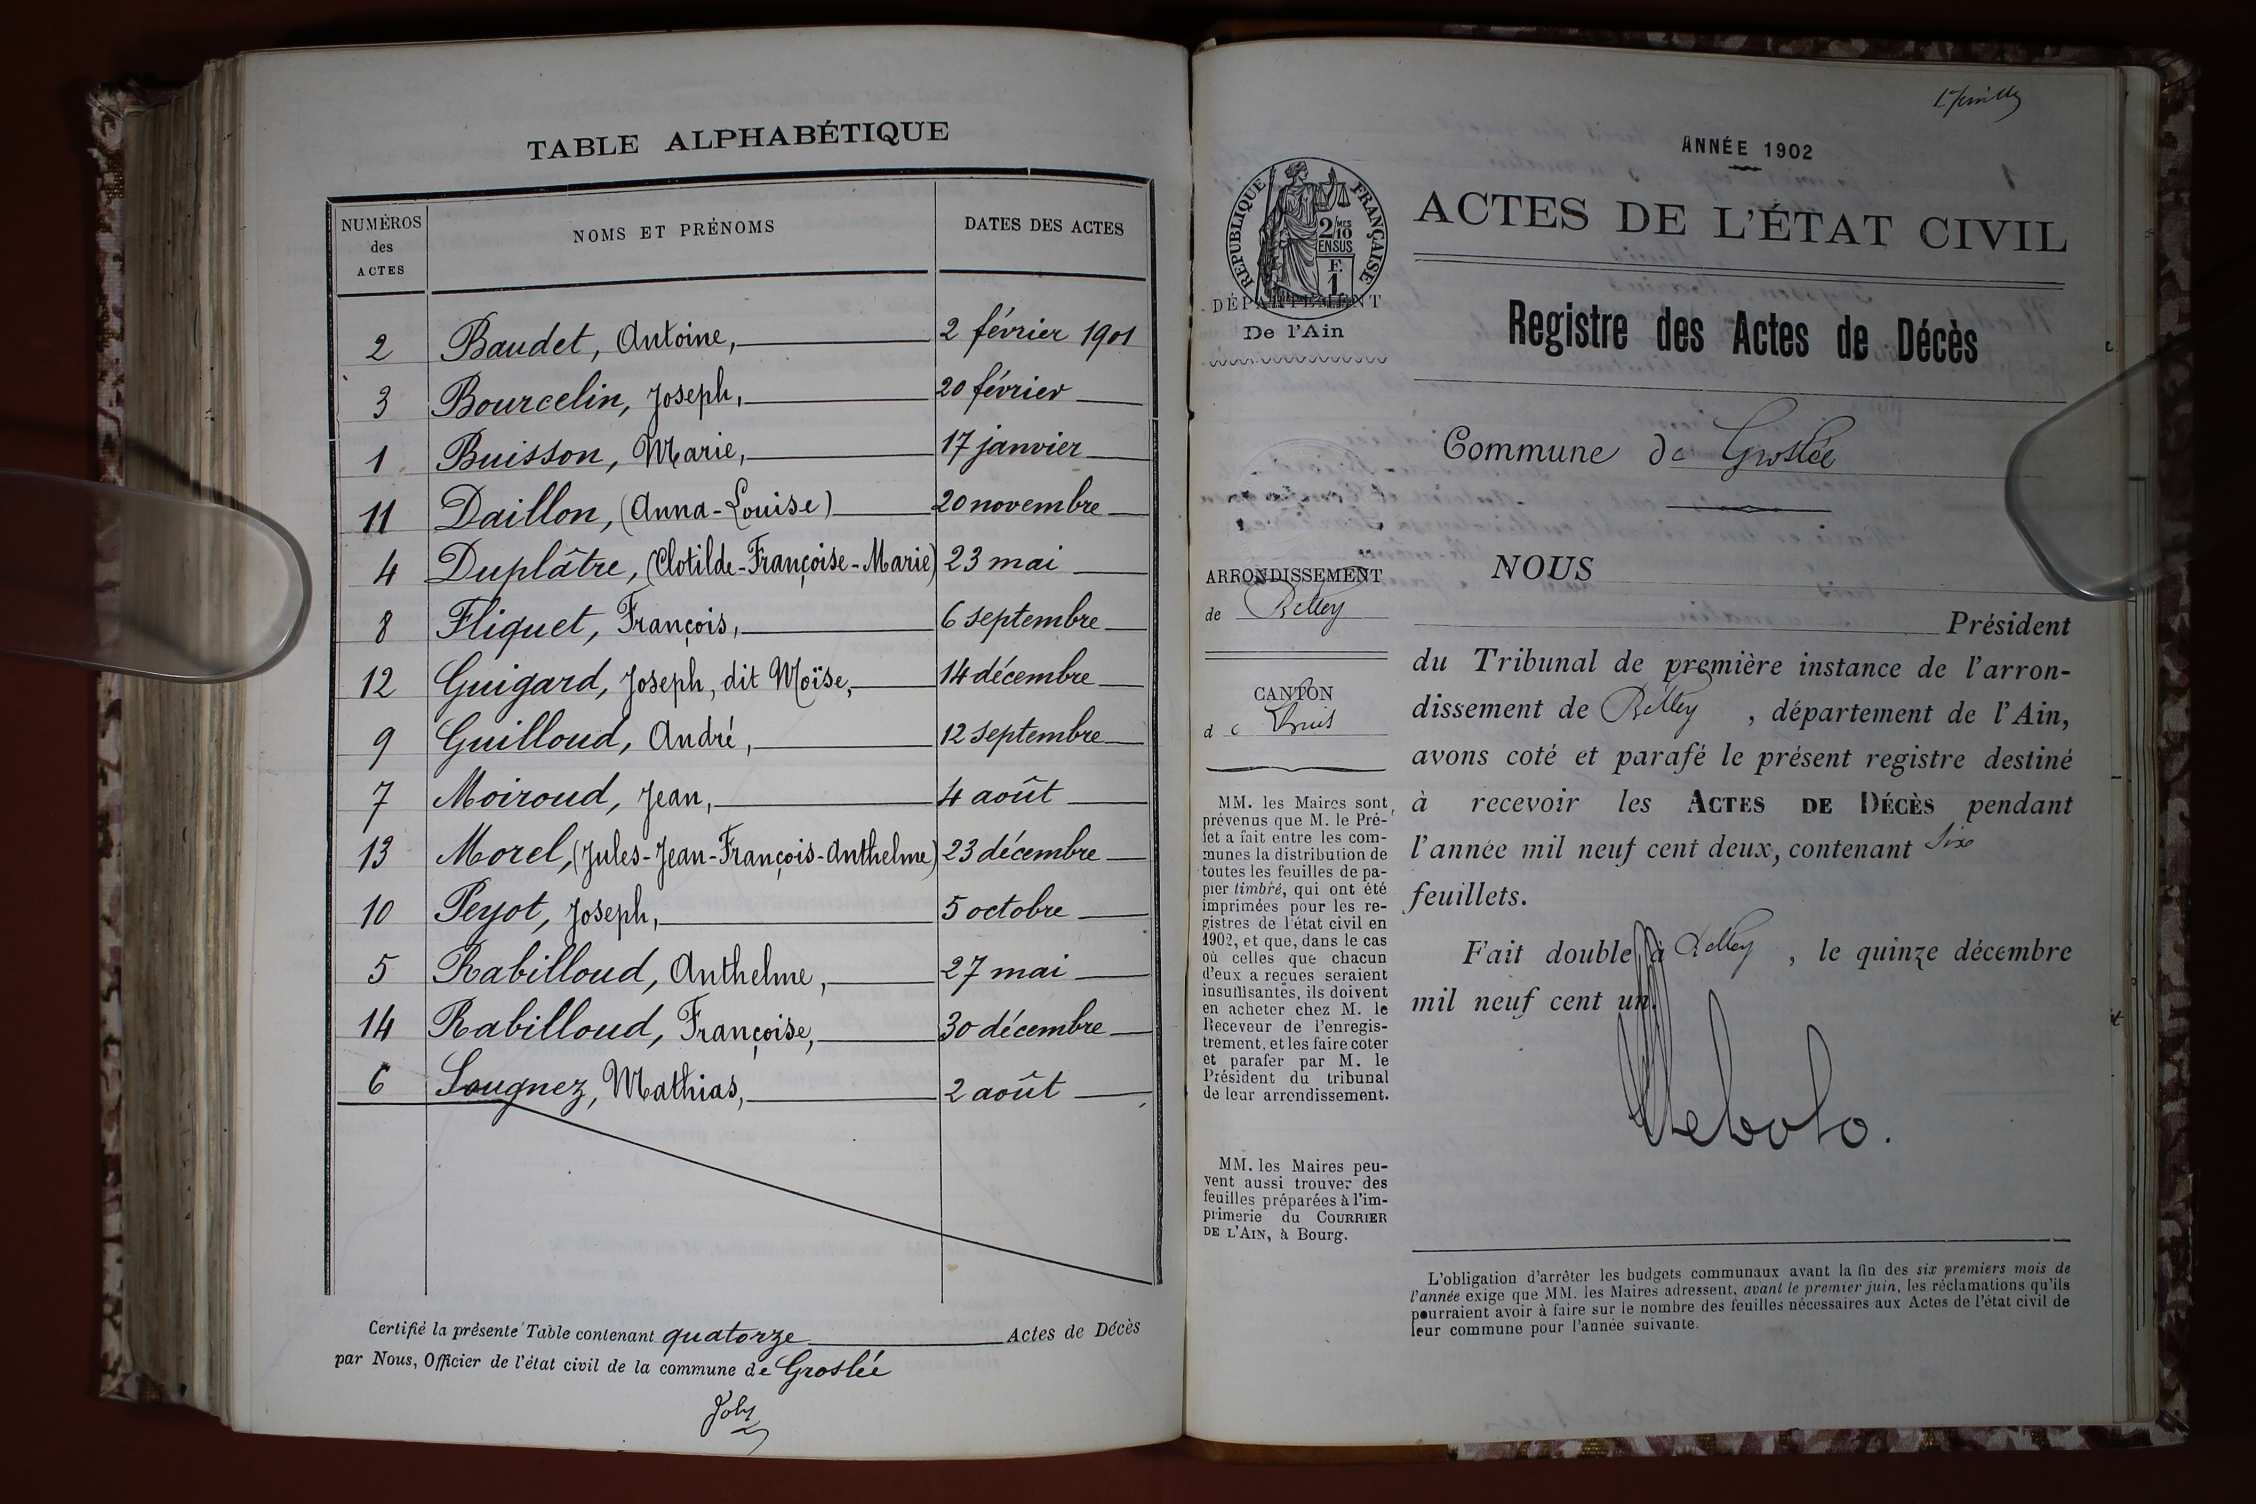 TABLE ALPHABÉTIQUE
NUMÉROS des ACTES NOMS ET PRÉNOMS DATES DES ACTES
2 Baudet, Antoine, 2 février 1901
3 Bourcelin, Joseph, 20 février
1 Buisson, Marie, 17 janvier
11 Daillon, (Anna-Louise) 20 novembre
4 Duplâtre, (Clotilde-Françoise-Marie) 23 mai
8 Fliquet, François, 6 septembre
12 Guigard, Joseph, dit Moïse, 14 décembre
9 Guilloud, André, 12 septembre
7 Moiroud, Jean, 4 août
13 Morel, (Jules-Jean-François-Anthelme) 23 décembre
10 Peyot, Joseph, 5 octobre
5 Rabilloud, Anthelme, 27 mai
14 Rabilloud, Françoise, 30 décembre
6 Sougnez, Mathias, 2 août
Certifié la présente Table contenant quatorze Actes de Décès
par Nous, Officier de l'état civil de la commune de Groslée
Joly
ANNÉE 1902
RÉPUBLIQUE FRANÇAISE
2/10 MES
EN SUS
F.
1
ACTES DE L'ÉTAT CIVIL
DÉPARTEMENT
De l'Ain
Registre des Actes de Décès
Commune de Groslée
ARRONDISSEMENT
de Belley
CANTON
de Lhuis
MM. les Maires sont
prévenus que M. le Pré-
fet a fait entre les com-
munes la distribution de
toutes les feuilles de pa-
pier timbré, qui ont été
imprimées pour les re-
gistres de l'état civil en
1902, et que, dans le cas
où celles que chacun
d'eux a reçues seraient
insuffisantes, ils doivent
en acheter chez M. le
Receveur de l'enregis-
trement, et les faire coter
et parafer par M. le
Président du tribunal
de leur arrondissement.
MM. les Maires peu-
vent aussi trouver des
feuilles préparées à l'im-
primerie du COURRIER
DE L'AIN, à Bourg.
NOUS
Président
du Tribunal de première instance de l'arron-
dissement de Belley, département de l'Ain,
avons coté et parafé le présent registre destiné
à recevoir les ACTES DE DÉCÈS pendant
l'année mil neuf cent deux, contenant six
feuillets.
Fait double à Belley, le quinze décembre
mil neuf cent un.
L'obligation d'arrêter les budgets communaux avant la fin des six premiers mois de
l'année exige que MM. les Maires adressent, avant le premier juin, les réclamations qu'ils
pourraient avoir à faire sur le nombre des feuilles nécessaires aux Actes de l'état civil de
leur commune pour l'année suivante.